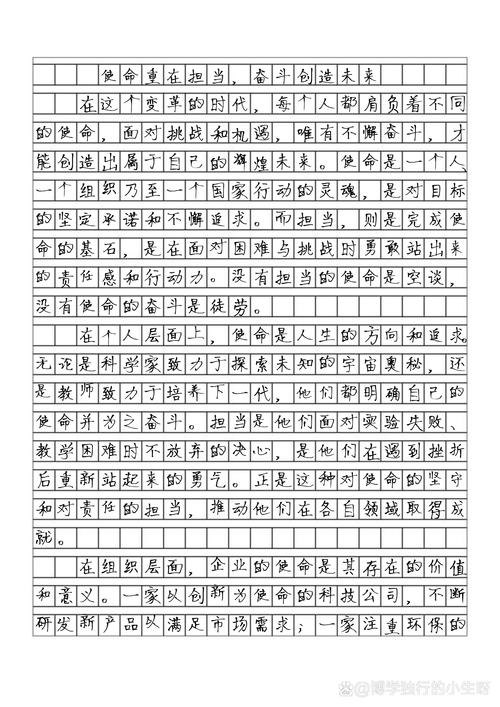 使命重在担当，奋斗创造未来
在这个变革的时代，每个人都肩负着不同
的使命，面对挑战和机遇，唯有不懈奋斗，才
能创造出属于自己的辉煌未来。使命是一个人、
一个组织乃至一个国家行动的灵魂，是对目标
的坚定承诺和不懈追求。而担当，则是完成使
命的基石，是在面对困难与挑战时勇敢站出来
的责任感和行动力。没有担当的使命是空谈，
没有使命的奋斗是徒劳。
在个人层面上，使命是人生的方向和追求。
无论是科学家致力于探索未知的宇宙奥秘，还
是教师致力于培养下一代，他们都明确自己的
使命并为之奋斗。担当是他们面对实验失败、
教学困难时不放弃的决心，是他们在遇到挫折
后重新站起来的勇气。正是这种对使命的坚守
和对责任的担当，推动他们在各自领域取得成
就。
在组织层面，企业的使命是其存在的价值
和意义。一家以创新为使命的科技公司，不断
研发新产品以满足市场需求；一家注重环保的
知乎 @博学独行的小生呀